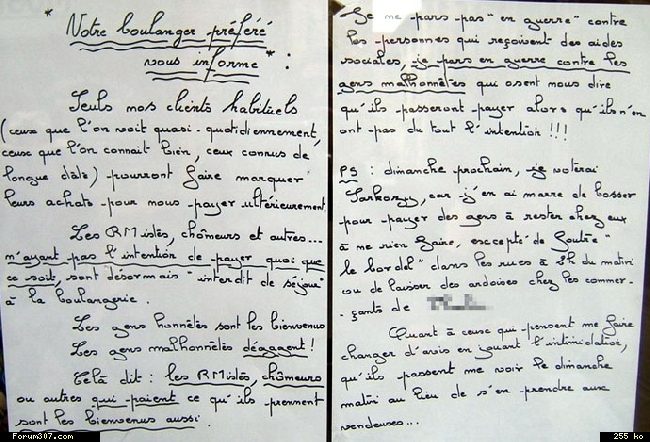 * Votre boulanger préféré
vous informe * :
Seuls nos clients habituels
(ceux que l'on voit quasi-quotidiennement,
ceux que l'on connait bien, ceux connus de
longue date) pourront faire marquer
leurs achats pour nous payer ultérieurement
Les RMistes, chômeurs et autres...
n'ayant pas l'intention de payer quoi que
ce soit, sont désormais "interdit de séjour"
à la boulangerie.
Les gens honnêtes sont les bienvenus
Les gens malhonnêtes dégagent !
Celà dit : les RMistes, chômeurs
ou autres qui paient ce qu'ils prennent
sont les bienvenus aussi.
Je me pars pas "en guerre" contre
les personnes qui reçoivent des aides
sociales, je pars en guerre contre les
gens malhonnêtes qui osent nous dire
qu'ils passeront payer alors qu'ils n'en
ont pas du tout l'intention !!!
PS : dimanche prochain, je voterai
Sarkozy, car j'en ai marre de bosser
pour payer des gens à rester chez eux
à ne rien faire, excepté de foutre "
le bordel" dans les rues à 2h du matin
ou de laisser des ardoises chez les commer-
çants de
Quant à ceux qui pensent me faire
changer d'avis en jouant l'intimidation,
qu'ils passent me voir le dimanche
matin au lieu de s'en prendre aux
vendeuses...
Forum307.com
255 ko